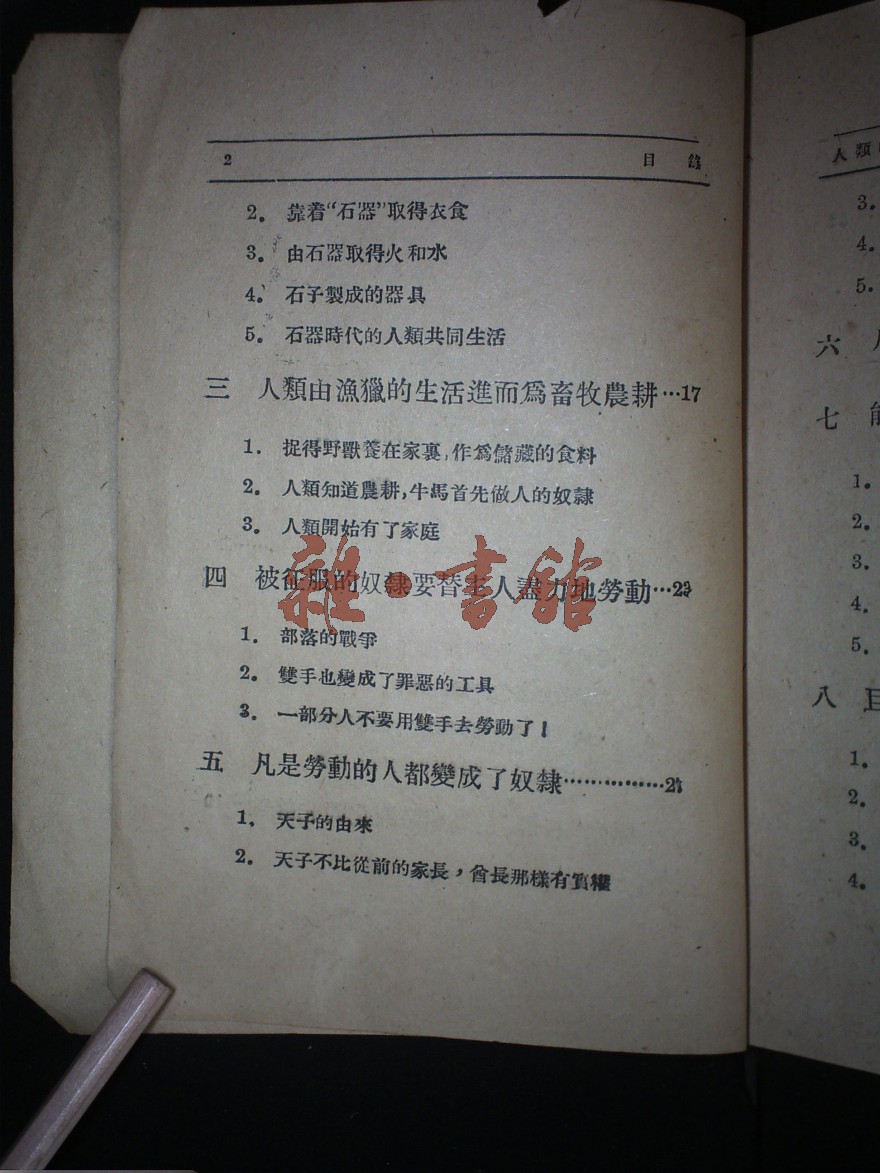 2 目錄
2. 靠着“石器”取得衣食
3. 由石器取得火和水
4. 石子製成的器具
5. 石器時代的人類共同生活
三 人類由漁獵的生活進而爲畜牧農耕…17
1. 捉得野獸養在家裏,作爲儲藏的食料
2. 人類知道農耕,牛馬首先做人的奴隸
3. 人類開始有了家庭
四 被征服的奴隸要替主人盡力地勞動…23
1. 部落的戰爭
2. 雙手也變成了罪惡的工具
3. 一部分人不要用雙手去勞動了!
五 凡是勞動的人都變成了奴隸……………
1. 天子的由來
2. 天子不比從前的家長,酋長那樣有實權
雜·書館
人類
3.
4.
5.
六
七
1.
2.
3.
4.
5.
八
1.
2.
3.
4.